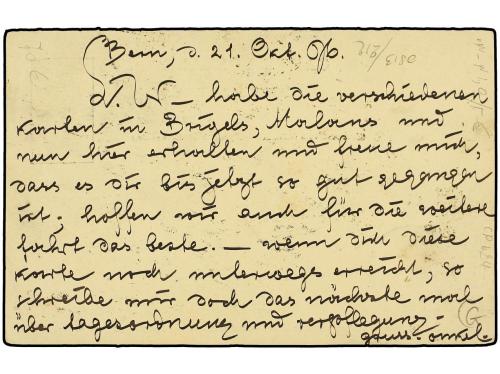 Bern, d. 21. Okt. 96.
L. W — habe die verschiedenen
karten in Brigels, Malans und
nun hier erhalten und freue mich,
dass es dir bis jetzt so gut gegangen
ist; hoffen wir auch für die weitere
fahrt das beste. — wenn dich diese
karte noch unterwegs erreicht, so
schreibe mir doch das nächste mal
über tagesordnung und verpflegung.
gruss. onkel.
G